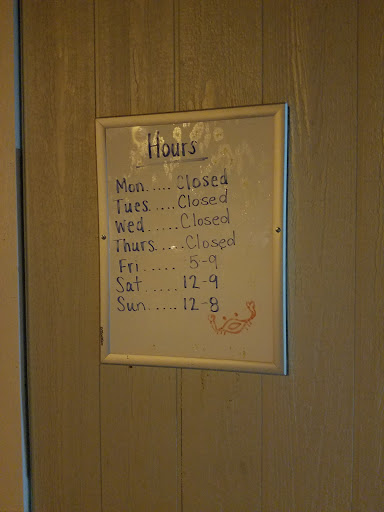 Hours
Mon..... Closed
Tues..... Closed
Wed..... Closed
Thurs..... Closed
Fri...... 5-9
Sat..... 12-9
Sun..... 12-8